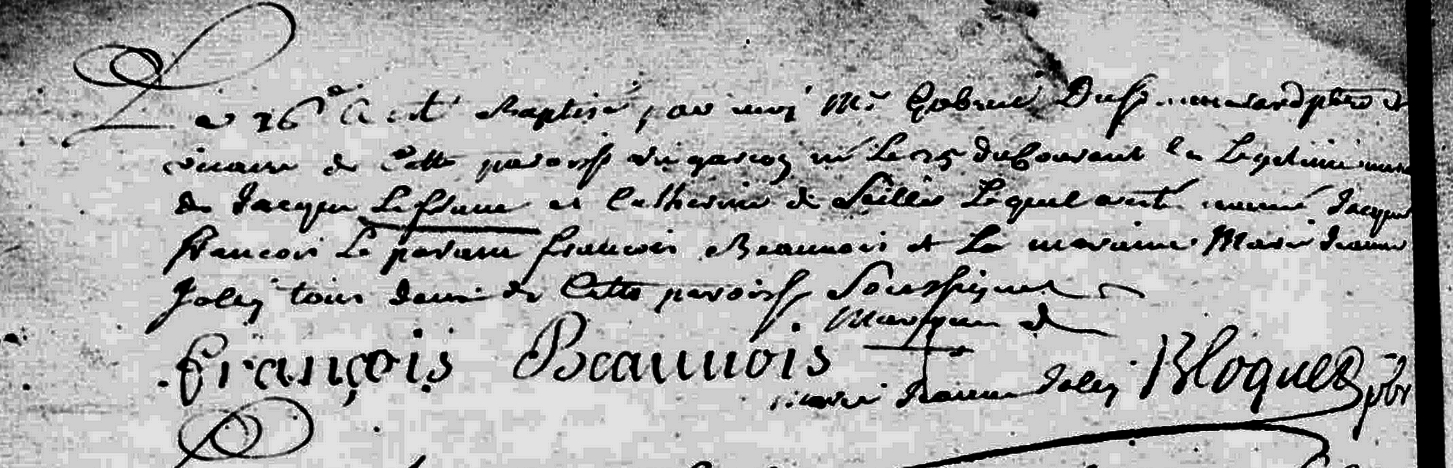 Le 26e a esté Baptisé par moy Mr Gabriel ptre et
vicaire de Cette paroisse un garçon né Le 25 du Courant en Legitime
de Jacque Lefranc et Catherine de Lequel a esté nommé Jacque
François Le parain françois Beaunois et La maraine Marie Jeanne
Joley tous deux de Cette paroisse Soussignez
marque de
François Beaunois
marie Jeanne Joley Bloquet pbr